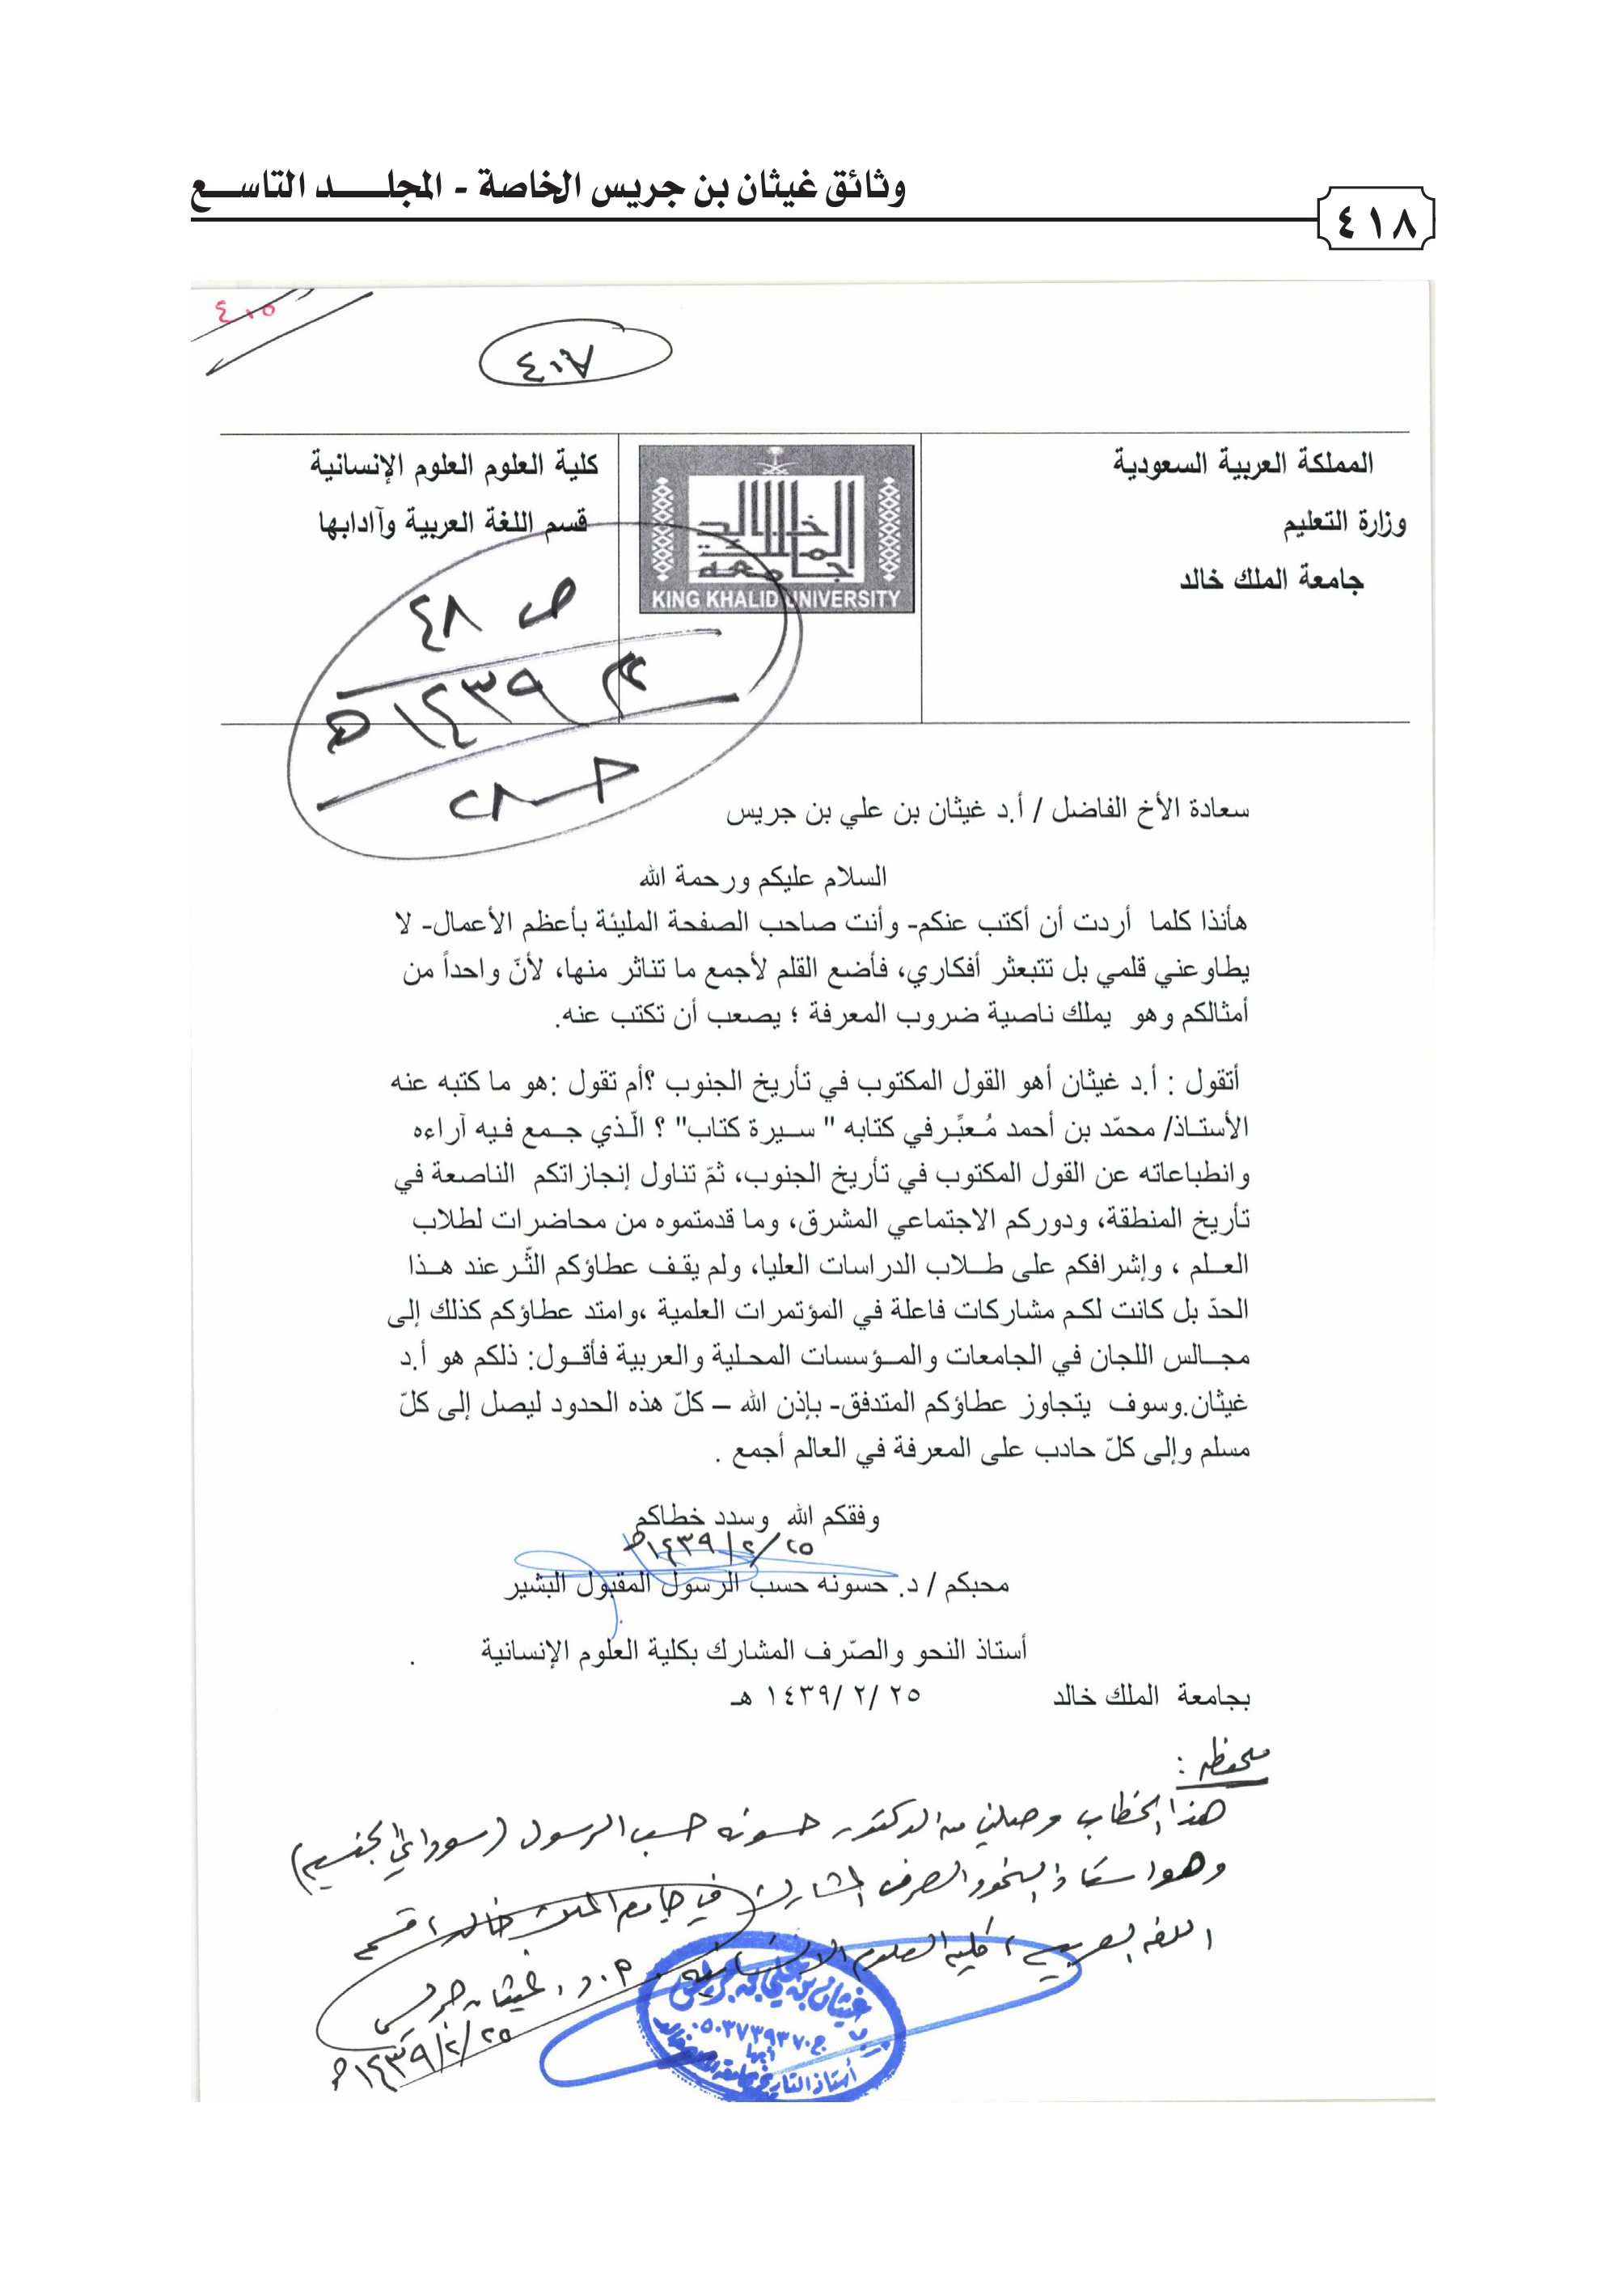 وثائق غيثان بن جريس الخاصة - المجلـــــد التاســـع
٤١٨
٤٠٥
٤٠٧
المملكة العربية السعودية
وزارة التعليم
جامعة الملك خالد
جامعة الملك خالد
KING KHALID UNIVERSITY
كلية العلوم العلوم الإنسانية
قسم اللغة العربية وآدابها
ص ٤٨
م ١٤٣٩هـ
سعادة الأخ الفاضل / أ.د غيثان بن علي بن جريس
السلام عليكم ورحمة الله
هأنذا كلما أردت أن أكتب عنكم- وأنت صاحب الصفحة المليئة بأعظم الأعمال- لا
يطاوعني قلمي بل تتبعثر أفكاري، فأضع القلم لأجمع ما تناثر منها، لأنّ واحداً من
أمثالكم وهو يملك ناصية ضروب المعرفة ؛ يصعب أن تكتب عنه.
أتقول : أ.د غيثان أهو القول المكتوب في تأريخ الجنوب ؟أم تقول :هو ما كتبه عنه
الأستـاذ/ محمّد بن أحمد مُـعبِّـرفي كتابه " سـيرة كتاب" ؟ الّـذي جـمع فـيه آراءه
وانطباعاته عن القول المكتوب في تأريخ الجنوب، ثمّ تناول إنجازاتكم الناصعة في
تأريخ المنطقة، ودوركم الاجتماعي المشرق، وما قدمتموه من محاضرات لطلاب
العـلم ، وإشرافكم على طـلاب الدراسات العليا، ولم يقـف عطاؤكم الثّـر عند هـذا
الحدّ بل كانت لكـم مشاركات فاعلة في المؤتمرات العلمية ،وامتد عطاؤكم كذلك إلى
مجـالس اللجان في الجامعات والمـؤسسات المحـلية والعربية فأقـول: ذلكم هو أ.د
غيثان.وسوف يتجاوز عطاؤكم المتدفق- بإذن الله – كلّ هذه الحدود ليصل إلى كلّ
مسلم وإلى كلّ حادب على المعرفة في العالم أجمع .
وفقكم الله وسدد خطاكم
٢٥/ ٢/ ١٤٣٩هـ
محبكم / د. حسونه حسب الرسول المقبول البشير
أستاذ النحو والصّرف المشارك بكلية العلوم الإنسانية .
بجامعة الملك خالد ٢٥ /٢ /١٤٣٩ هـ
ملحوظه :
هذا الخطاب وصلني من الدكتور حسونه حسب الرسول (سوداني الجنسيه)
وهو استاذ النحو والصرف المشارك في جامعه الملك خالد ، قسم
اللغه العربيه ، كليه العلوم الانسانيه
أ.د. غيثان جريس
٢٥/ ٢/ ١٤٣٩هـ
غيثان بن علي بن جريس
ج ٠٥٠٣٧٣٩٣٧٠
أبها
أستاذ التاريخ بجامعة الملك خالد